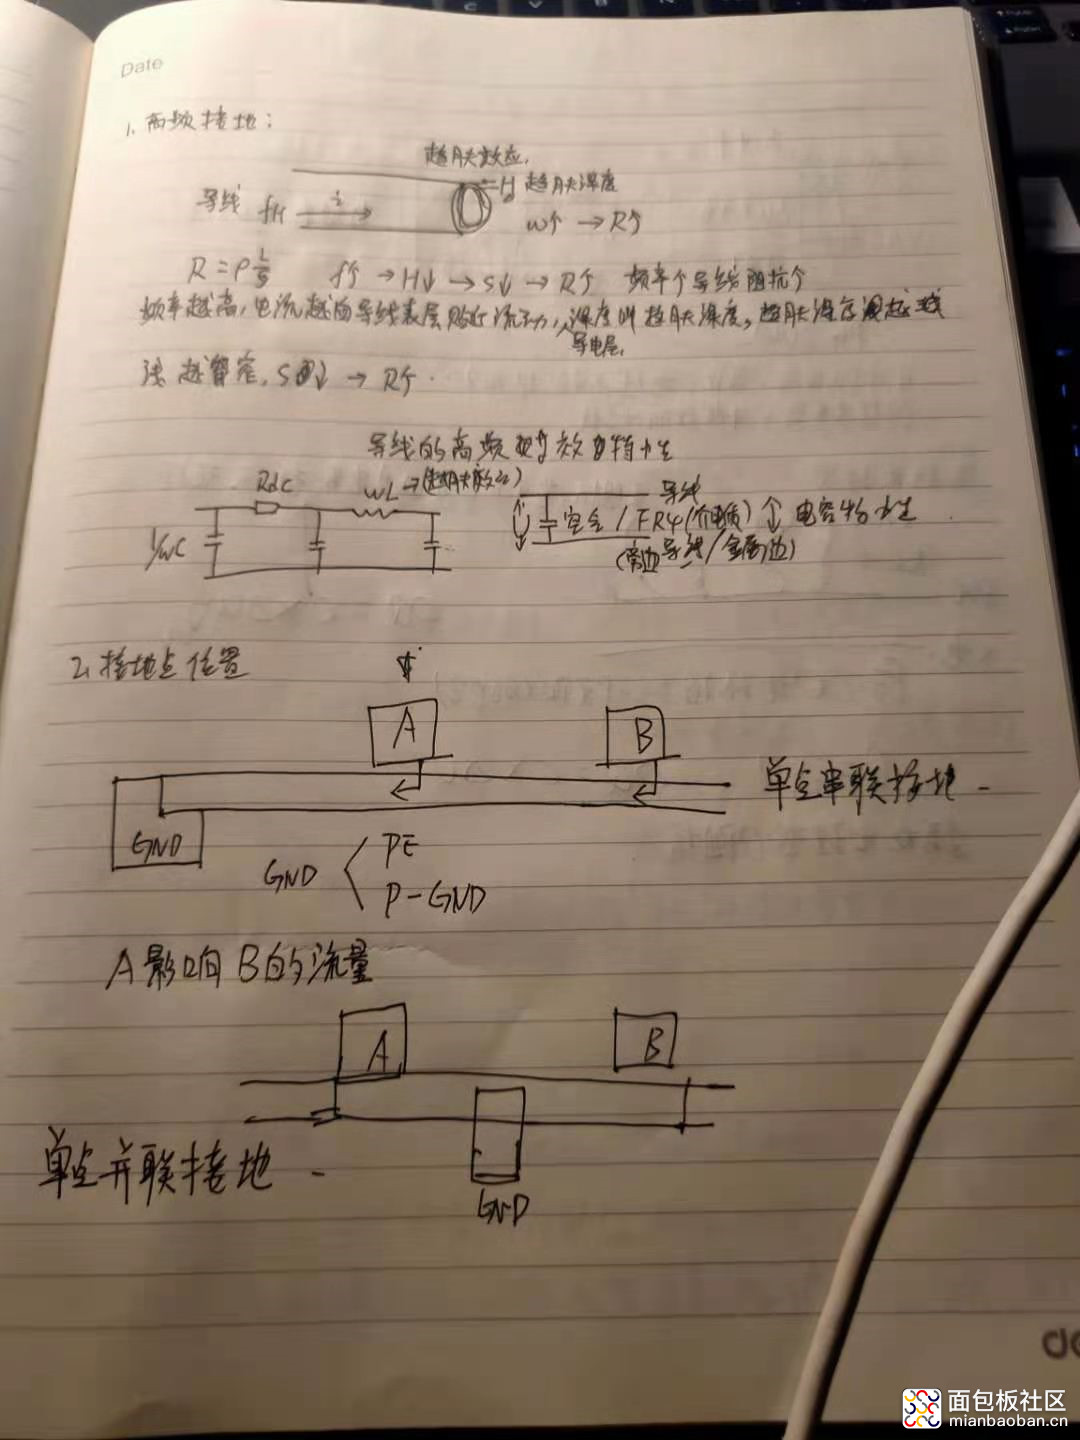 Date
1. 高频接地:
趋肤效应.
H 趋肤深度
导线 fH i
w↑ → R↑
R = ρ L/S f↑ → H↓ → S↓ → R↑ 频率↑导线阻抗↑
频率越高, 电流越向导线表层贴近流动, 深度叫趋肤深度, 趋肤深度越
导电层,
浅越, S↓ → R↑.
导线的高频等效特性
Rdc wL→(趋肤效应) 导线
1/wC 空气 / FR4 (介电质) ↕ 电容特性
(旁边导线/金属边)
2. 接地点位置
A B
单点串联接地 -
GND
GND < PE
P-GND
A影响B的流量
A B
单点并联接地 -
GND
do
面包板社区
mianbaoban.cn